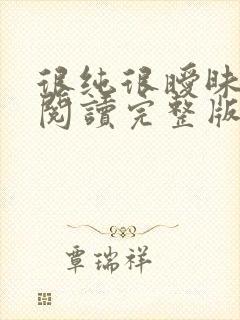 很纯很暧昧
閱讀完整版
覃瑞祥